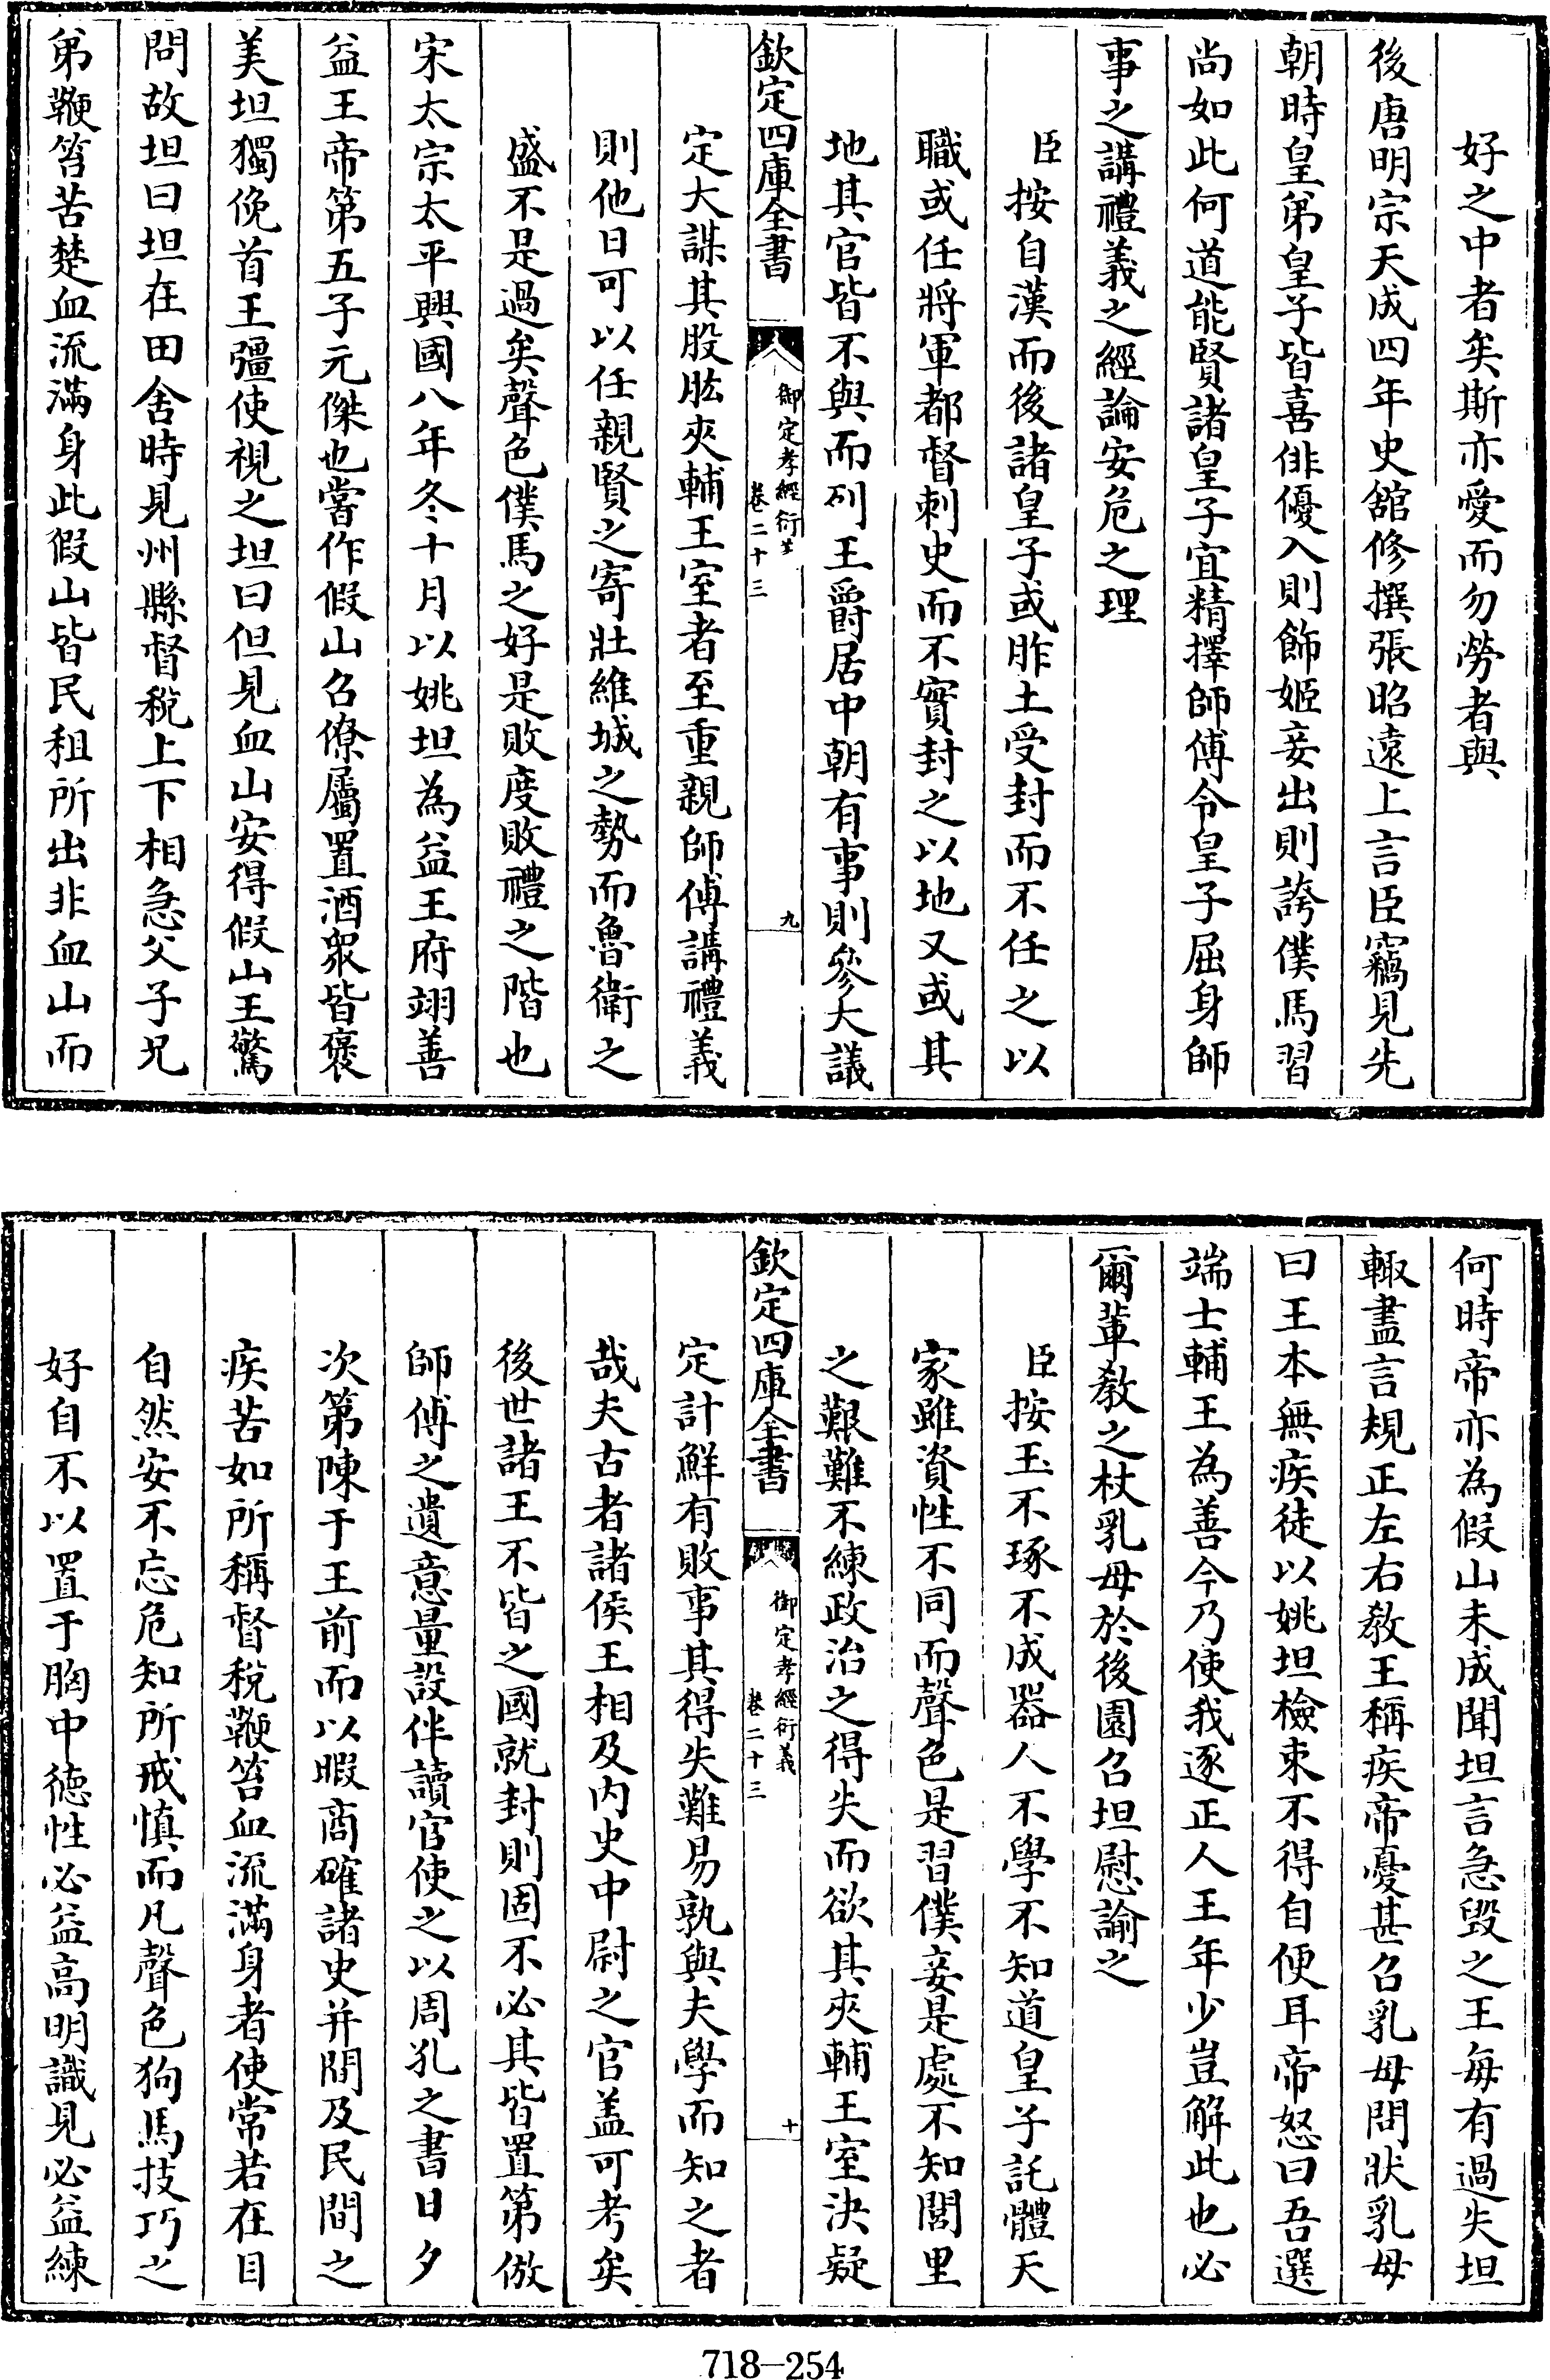 好之中者矣斯亦愛而勿勞者與
後唐明宗天成四年史舘修撰張昭遠上言臣竊見先
朝時皇弟皇子皆喜俳優入則飾姬妾出則誇僕馬習
尚如此何道能賢諸皇子宜精擇師傅令皇子屈身師
事之講禮義之經論安危之理
臣按自漢而後諸皇子或胙土受封而不任之以
職或任將軍都督刺史而不實封之以地又或其
地其官皆不與而列王爵居中朝有事則參大議
欽定四庫全書
御定孝經衍義
卷二十三
九
定大謀其股肱夾輔王室者至重親師傅講禮義
則他日可以任親賢之寄壯維城之勢而魯衛之
盛不是過矣聲色僕馬之好是敗度敗禮之階也
宋太宗太平興國八年冬十月以姚坦為益王府翊善
益王帝第五子元傑也嘗作假山召僚屬置酒衆皆褒
美坦獨俛首王彊使視之坦曰但見血山安得假山王驚
問故坦曰坦在田舍時見州縣督稅上下相急父子兄
弟鞭笞苦楚血流滿身此假山皆民租所出非血山而
何時帝亦為假山未成聞坦言急毀之王每有過失坦
輙盡言規正左右敎王稱疾帝憂甚召乳母問狀乳母
曰王本無疾徒以姚坦檢束不得自便耳帝怒曰吾選
端士輔王為善今乃使我逐正人王年少豈解此也必
爾輩敎之杖乳母於後園召坦慰諭之
臣按玉不琢不成器人不學不知道皇子託體天
家雖資性不同而聲色是習僕妾是處不知閭里
之艱難不練政治之得失而欲其夾輔王室決疑
欽定四庫全書
御定孝經衍義
卷二十三
十
定計鮮有敗事其得失難易孰與夫學而知之者
哉夫古者諸侯王相及内史中尉之官盖可考矣
後世諸王不皆之國就封則固不必其皆置第倣
師傅之遺意量設伴讀官使之以周孔之書日夕
次第陳于王前而以暇商確諸史并間及民間之
疾苦如所稱督稅鞭笞血流滿身者使常若在目
自然安不忘危知所戒慎而凡聲色狗馬技巧之
好自不以置于胸中德性必益高明識見必益練
718—254